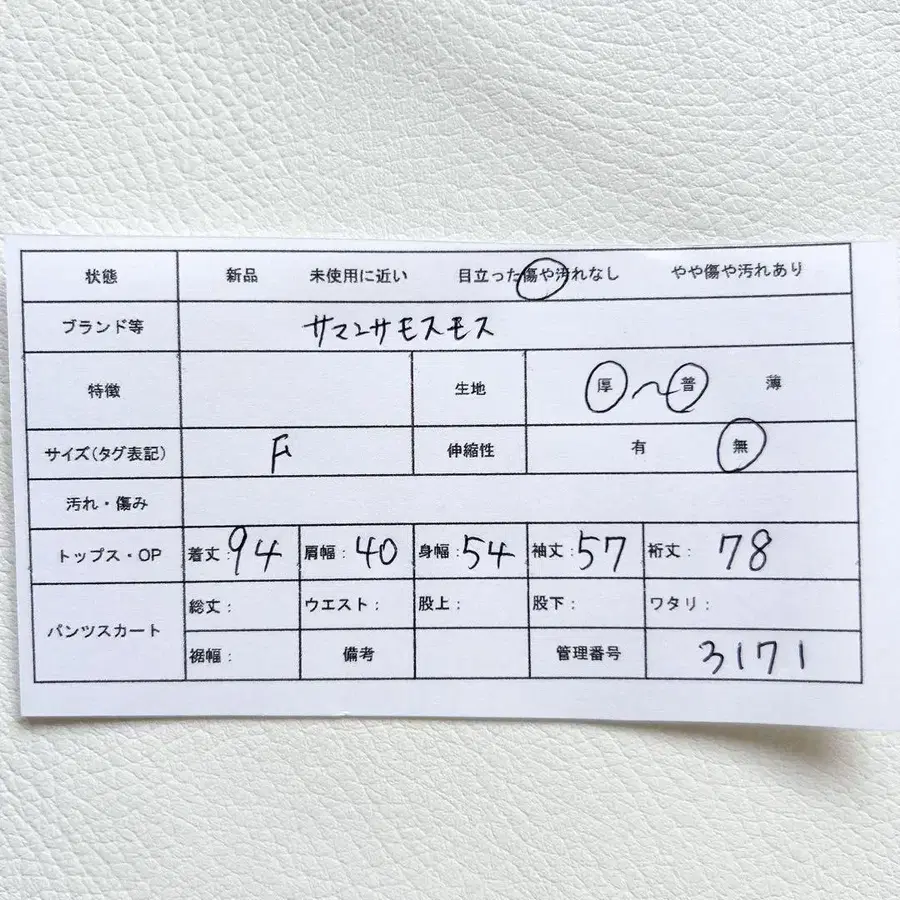 状態 新品 未使用に近い 目立った傷や汚れなし やや傷や汚れあり
ブランド等 サマンサモスモス
特徴 生地 厚 〜 普 薄
サイズ(タグ表記) F 伸縮性 有 無
汚れ・傷み
トップス・OP 着丈:94 肩幅:40 身幅:54 袖丈:57 裄丈:78
パンツスカート 総丈: ウエスト: 股上: 股下: ワタリ:
裾幅: 備考 管理番号 3171